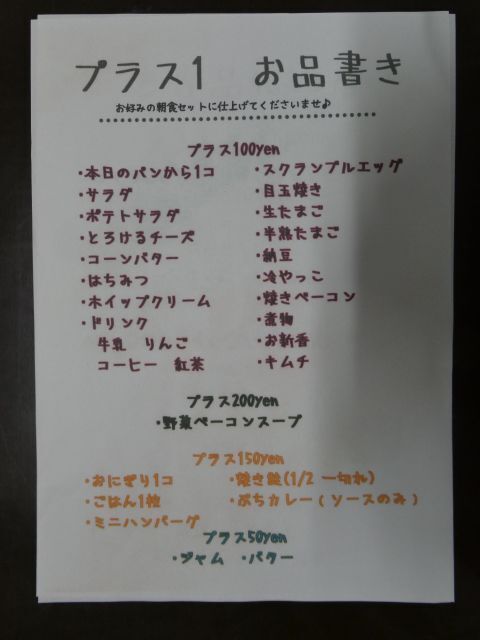 プラス1　お品書き
お好みの朝食セットに仕上げてくださいませ♪
プラス100yen
・本日のパンから1コ
・サラダ
・ポテトサラダ
・とろけるチーズ
・コーンバター
・はちみつ
・ホイップクリーム
・ドリンク
牛乳　りんご
コーヒー　紅茶
・スクランブルエッグ
・目玉焼き
・生たまご
・半熟たまご
・納豆
・冷やっこ
・焼きベーコン
・煮物
・お新香
・キムチ
プラス200yen
・野菜ベーコンスープ
プラス150yen
・おにぎり1コ
・ごはん1枚
・ミニハンバーグ
・焼き鮭(1/2 一切れ)
・ぷちカレー(ソースのみ)
プラス50yen
・ジャム　・バター